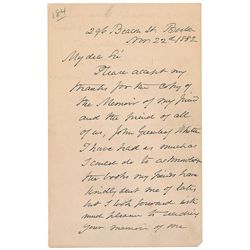 184
296 Beacon St. Boston
Nov 22nd 1882
My dear Sir
Please accept my
thanks for the copy of
the Memoir of my friend
and the friend of all
of us, John Greenleaf Whittier
I have had as much as
I could do to acknowledge
the books my friends have
kindly sent me of late,
but I look forward with
much pleasure to reading
your memoir of one